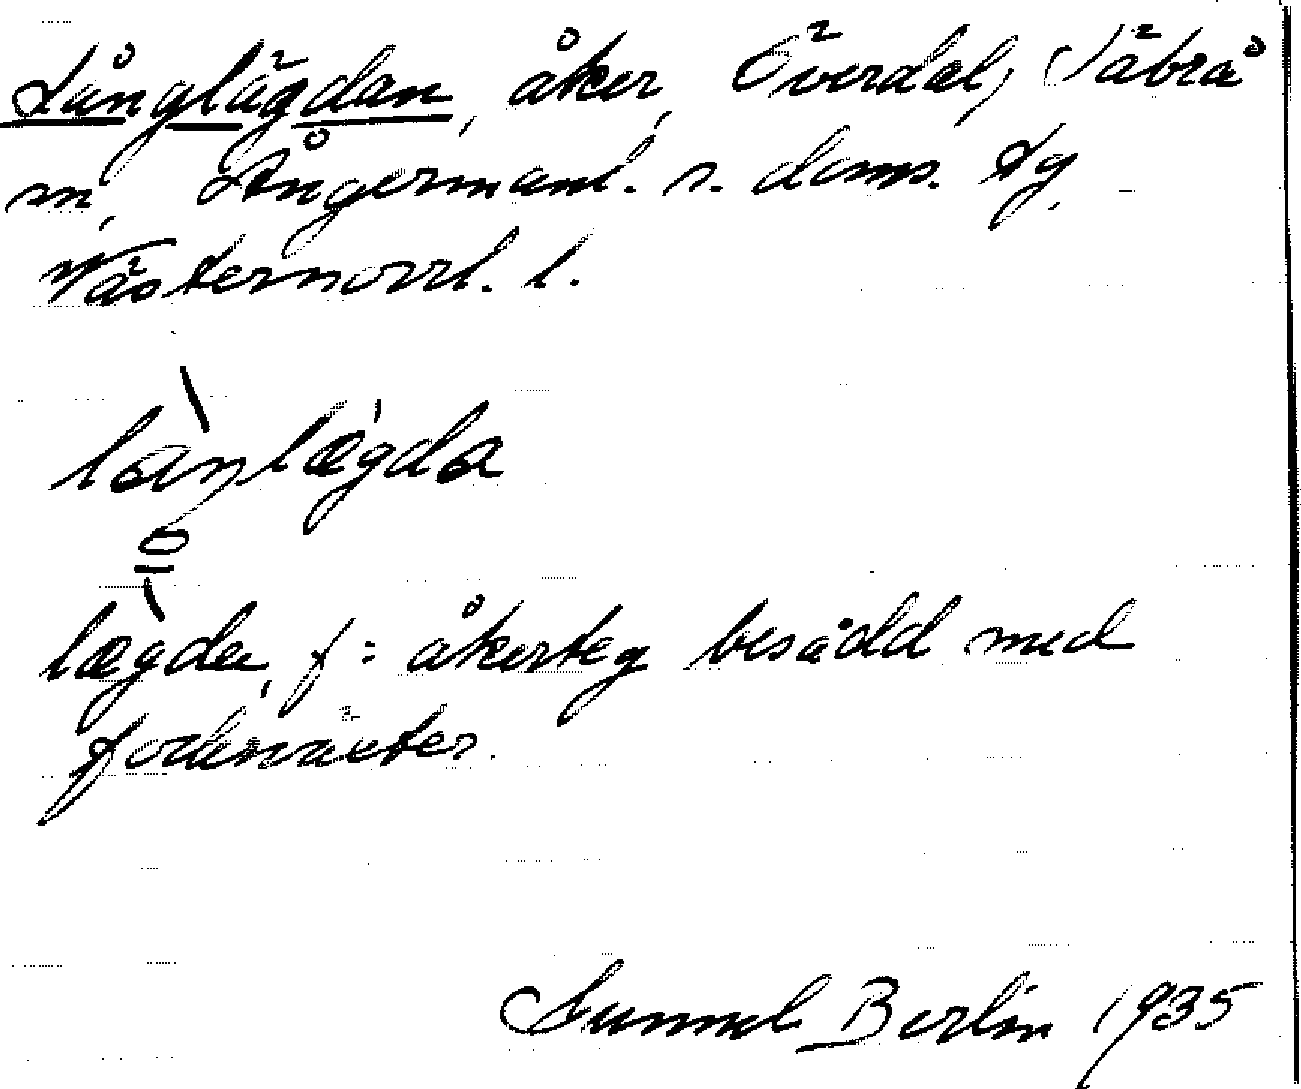 Långlägdan, åker, Överdel, Säbrå
sn, Ångermanl. s. doms. tg,
Västernorrl. l.
làŋlægda
lægda, f = åkerteg besådd med
foderväxter.
Gunnel Berlin 1935